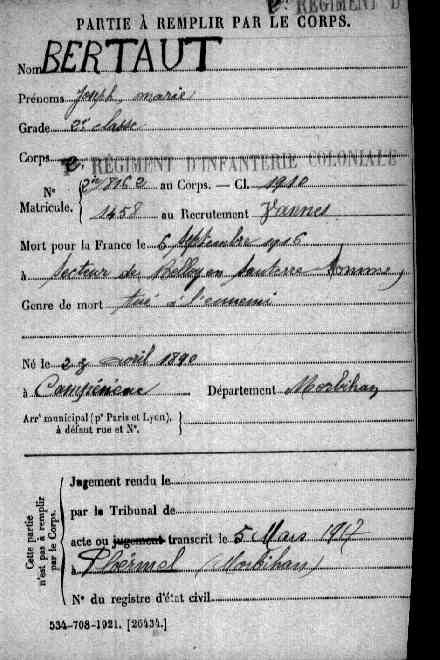 2e RÉGIMENT D
PARTIE À REMPLIR PAR LE CORPS.
Nom BERTAUT
Prénoms Joseph, marie
Grade 2e classe
Corps 2e RÉGIMENT D'INFANTERIE COLONIALE
N° Matricule. 8162 au Corps. — Cl. 1910
1458 au Recrutement Vannes
Mort pour la France le 6 septembre 1916
à secteur de Belloy en Santerre Somme
Genre de mort tué à l'ennemi
Né le 23 avril 1890
à Campénéac Département Morbihan
Arrt municipal (pr Paris et Lyon),
à défaut rue et N°.
Cette partie
n'est pas à remplir
par le Corps.
Jugement rendu le
par le Tribunal de
acte ou jugement transcrit le 5 Mars 1917
à Ploërmel (Morbihan)
N° du registre d'état civil
534-708-1921. [26434.]